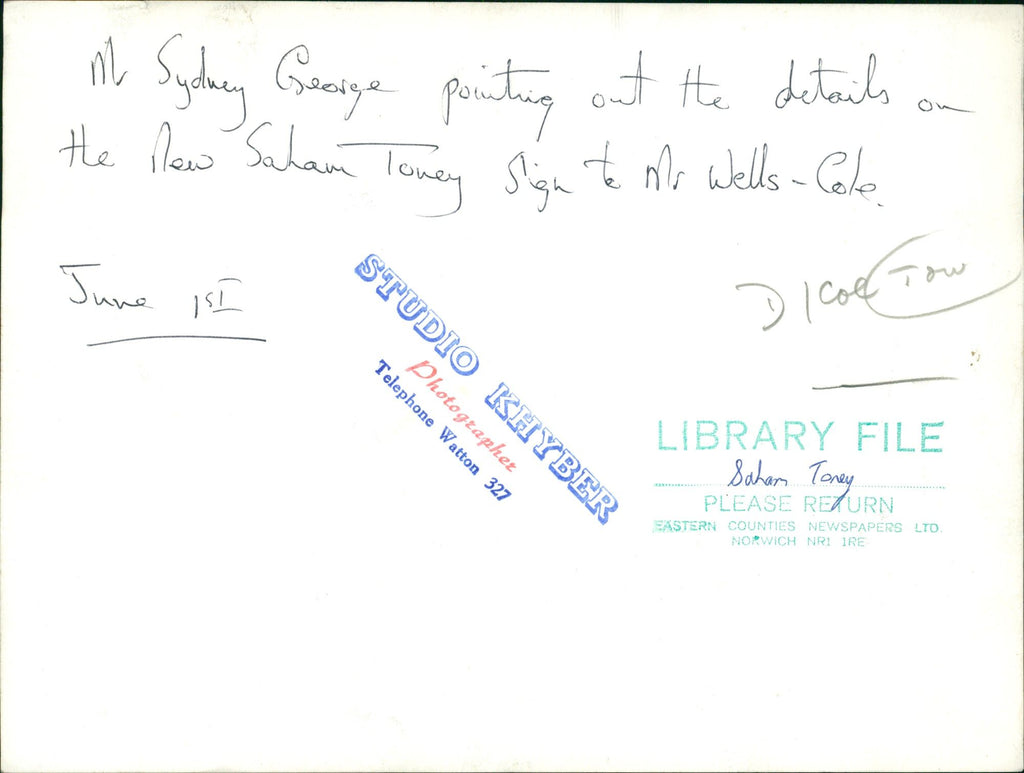 Mr Sydney George pointing out the details on
the New Saham Toney Sign to Mr Wells-Cole.
June 1ST
D/Col Tow
STUDIO KHYBER
Photographer
Telephone Watton 327
LIBRARY FILE
Saham Toney
PLEASE RETURN
EASTERN COUNTIES NEWSPAPERS LTD.
NORWICH NR1 1RE